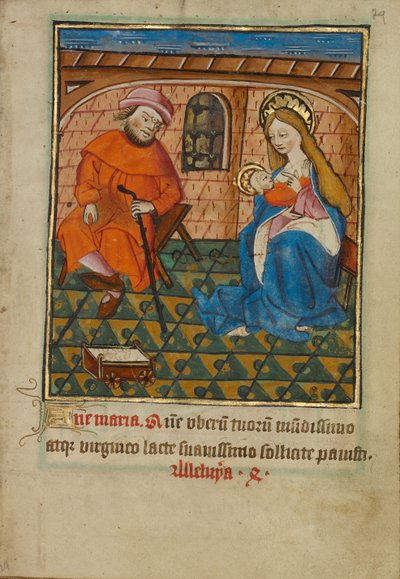 29
Aue maria. Que vberū tuorū mūdissimo
atqꝫ virgineo lacte suauissimo sollicite pauisti.
Alleluya ·